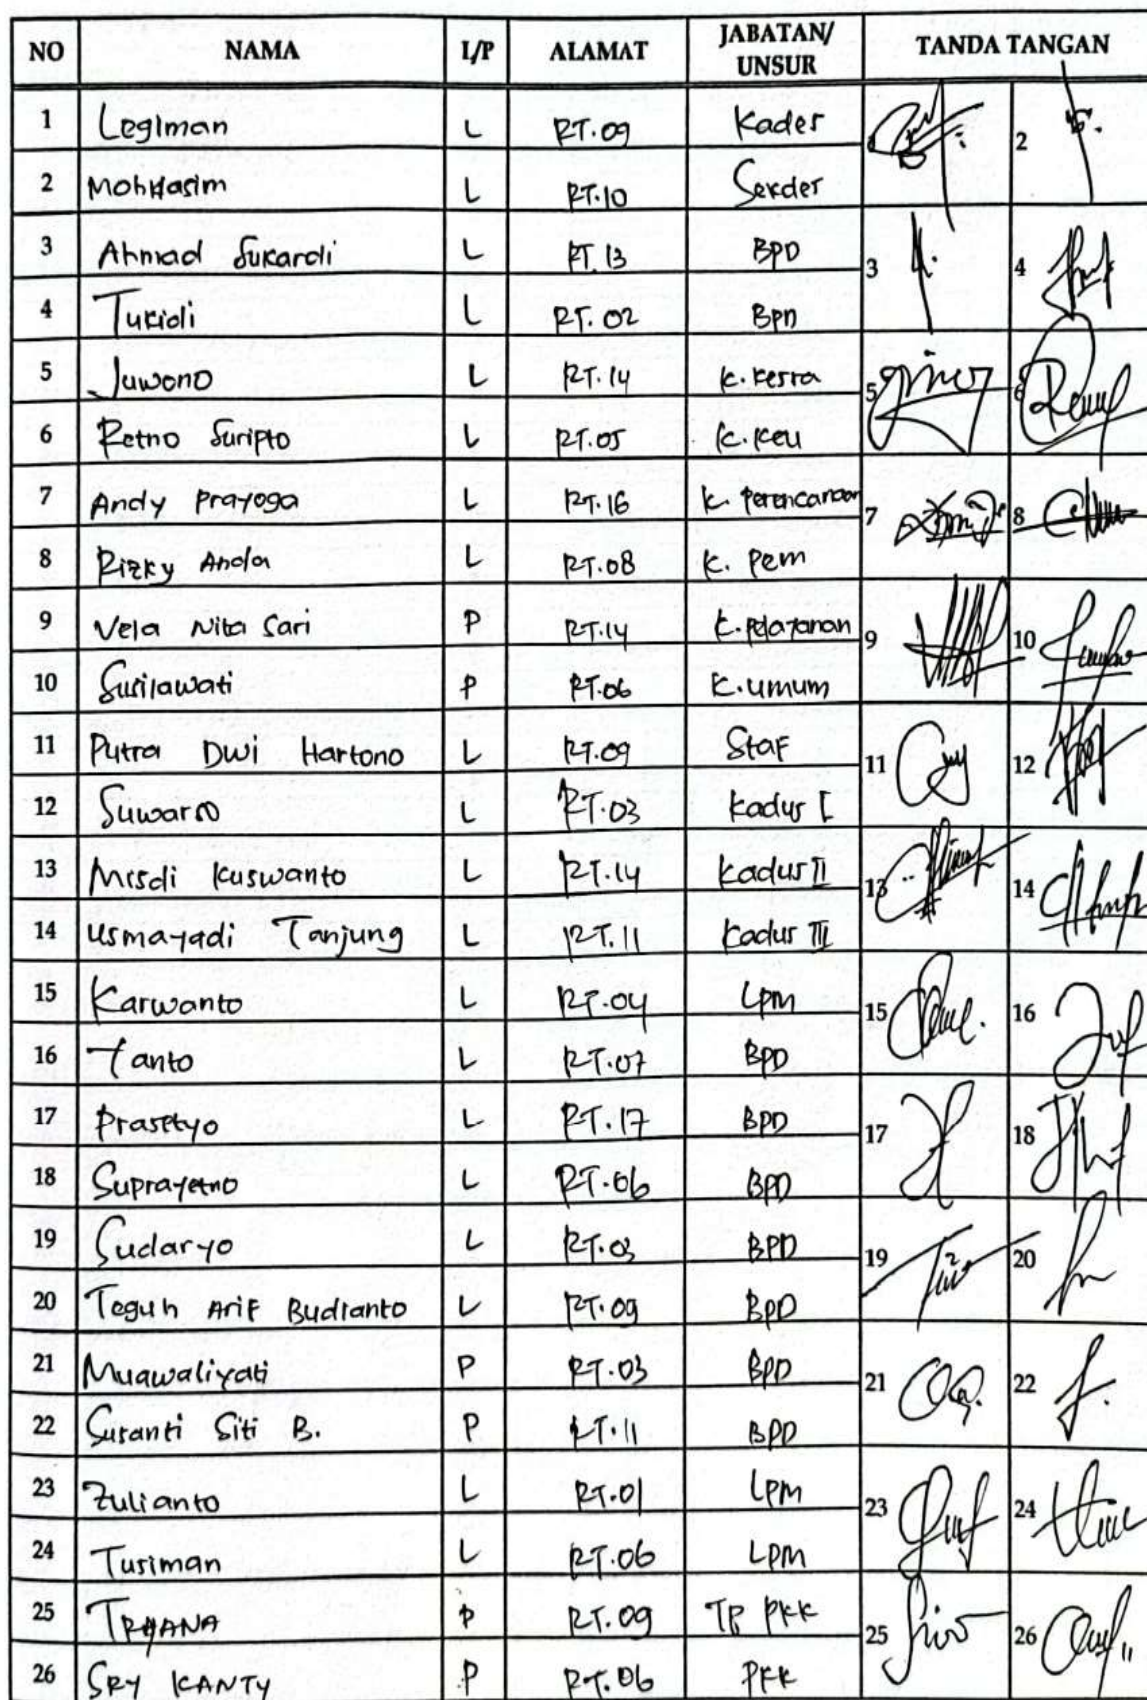 NO NAMA L/P ALAMAT JABATAN/ UNSUR TANDA TANGAN
1 Legiman L RT.09 Kades 2
2 Moh Hasim L RT.10 Sekdes
3 Ahmad Sukardi L RT.13 BPD 3 4
4 Tukidi L RT.02 BPD
5 Juwono L RT.14 K.Kesra 5 6
6 Retno Suripto L RT.05 K.Keu
7 Andy Prayoga L RT.16 K. Perencanaan 7 8
8 Rizky Anda L RT.08 K. Pem
9 Vela Nita Sari P RT.14 K.Pelayanan 9 10
10 Susilawati P RT.06 K.Umum
11 Putra Dwi Hartono L RT.09 Staf 11 12
12 Suwarso L RT.03 Kadus I
13 Misdi Kuswanto L RT.14 Kadus II 13 14
14 Usmayadi Tanjung L RT.11 Kadus III
15 Karwanto L RT.04 LPM 15 16
16 Tanto L RT.07 BPD
17 Prasetyo L RT.17 BPD 17 18
18 Suprayetno L RT.06 BPD
19 Sudaryo L RT.03 BPD 19 20
20 Teguh Arif Budianto L RT.09 BPD
21 Muawaliyati P RT.03 BPD 21 22
22 Susanti Siti B. P RT.11 BPD
23 Zulianto L RT.01 LPM 23 24
24 Tusiman L RT.06 LPM
25 P RT.09 TP PKK 25 26
26 SRY KANTY P RT.06 PKK